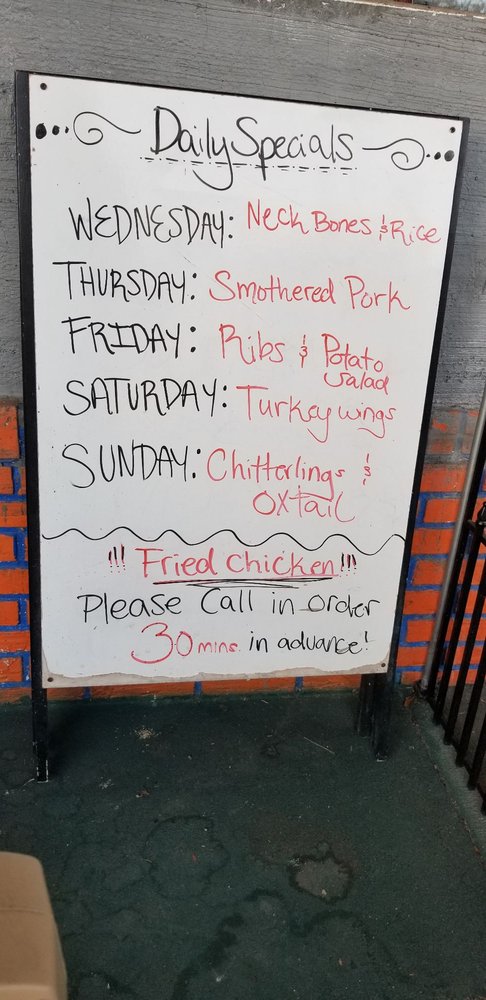 Daily Specials
WEDNESDAY: Neck Bones & Rice
THURSDAY: Smothered Pork
FRIDAY: Ribs & Potato
Salad
SATURDAY: Turkey wings
SUNDAY: Chitterlings &
OXtail
!!! Fried Chicken !!!
Please Call in order
30 mins. in advance!